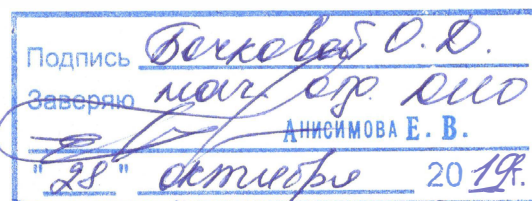 Подпись Бочковой О.Д.
Заверяю нач. отд. ОИО
АНИСИМОВА Е. В.
"28" октября 2019г.